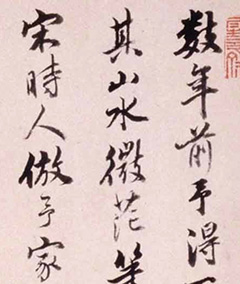 數年前予得
其山水微茫
宋時人倣予家